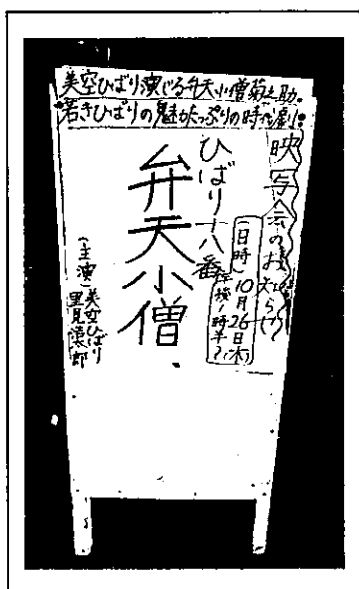 美空ひばり演じる弁天小僧菊之助。
若きひばりの魅力たっぷりの時代劇。
映写会のお知らせ
(日時)10月26日(木)
午後1時半〜
ひばり十八番
弁天小僧
(主演)美空ひばり
里見浩太郎